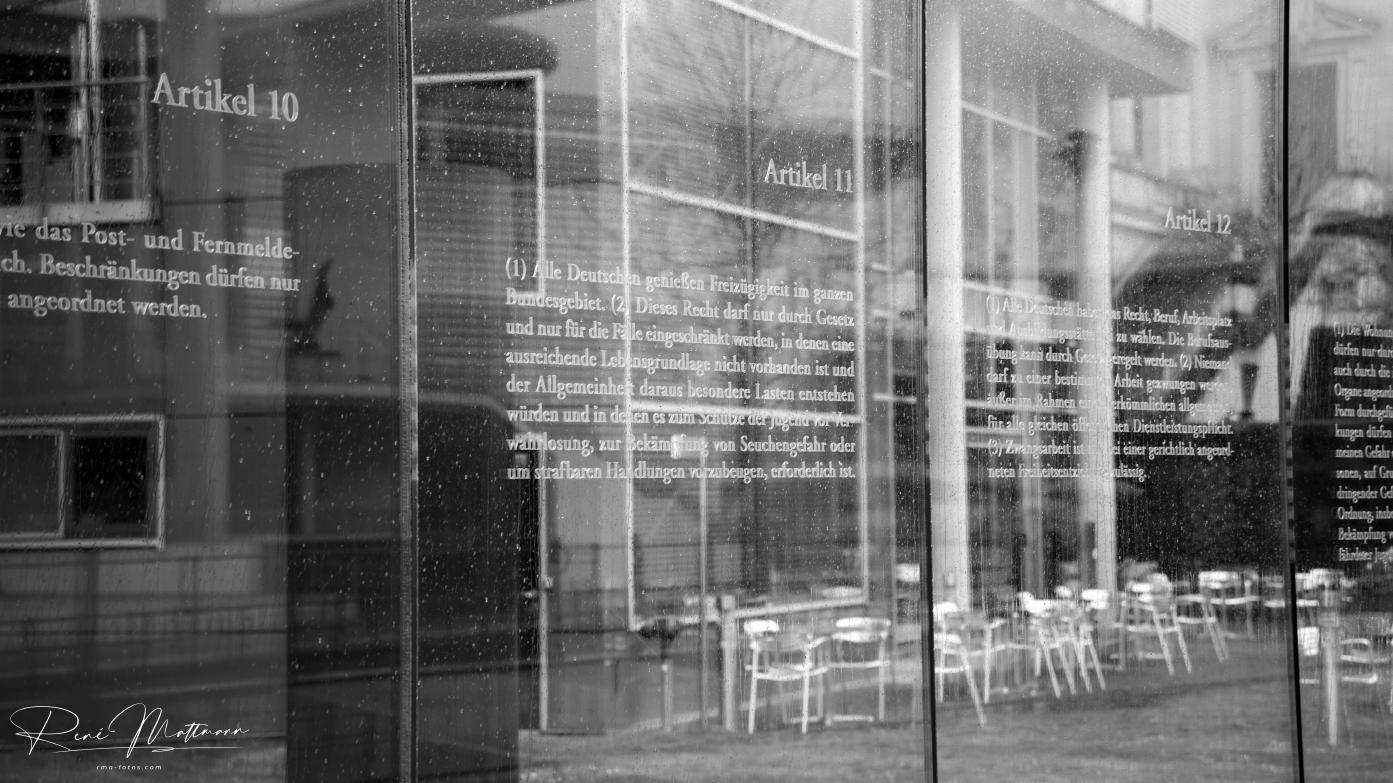 Artikel 10
wie das Post- und Fernmelde-
ch. Beschränkungen dürfen nur
angeordnet werden.
Artikel 11
(1) Alle Deutschen genießen Freizügigkeit im ganzen
Bundesgebiet. (2) Dieses Recht darf nur durch Gesetz
und nur für die Fälle eingeschränkt werden, in denen eine
ausreichende Lebensgrundlage nicht vorhanden ist und
der Allgemeinheit daraus besondere Lasten entstehen
würden und in denen es zum Schutze der Jugend vor Ver-
wahrlosung, zur Bekämpfung von Seuchengefahr oder
um strafbaren Handlungen vorzubeugen, erforderlich ist.
Artikel 12
(1) Alle Deutschen haben das Recht, Beruf, Arbeitsplatz
und Ausbildungsstätte zu wählen. Die Berufsaus-
übung kann durch Gesetz geregelt werden. (2) Niemand
darf zu einer bestimmten Arbeit gezwungen werden,
außer im Rahmen einer herkömmlichen allgemeinen,
für alle gleichen öffentlichen Dienstleistungspflicht.
(3) Zwangsarbeit ist bei einer gerichtlich angeord-
neten Freiheitsentziehung zulässig.
(1) Die Wohnun
dürfen nur du
auch durch die
Organe angeord
Form durchgef
kungen dürfen
meinen Gefahr
sonen, auf Gru
dringender Gef
Ordnung, insb
Bekämpfung v
fährdeter Juge
René Mattmann
rma-fotos.com